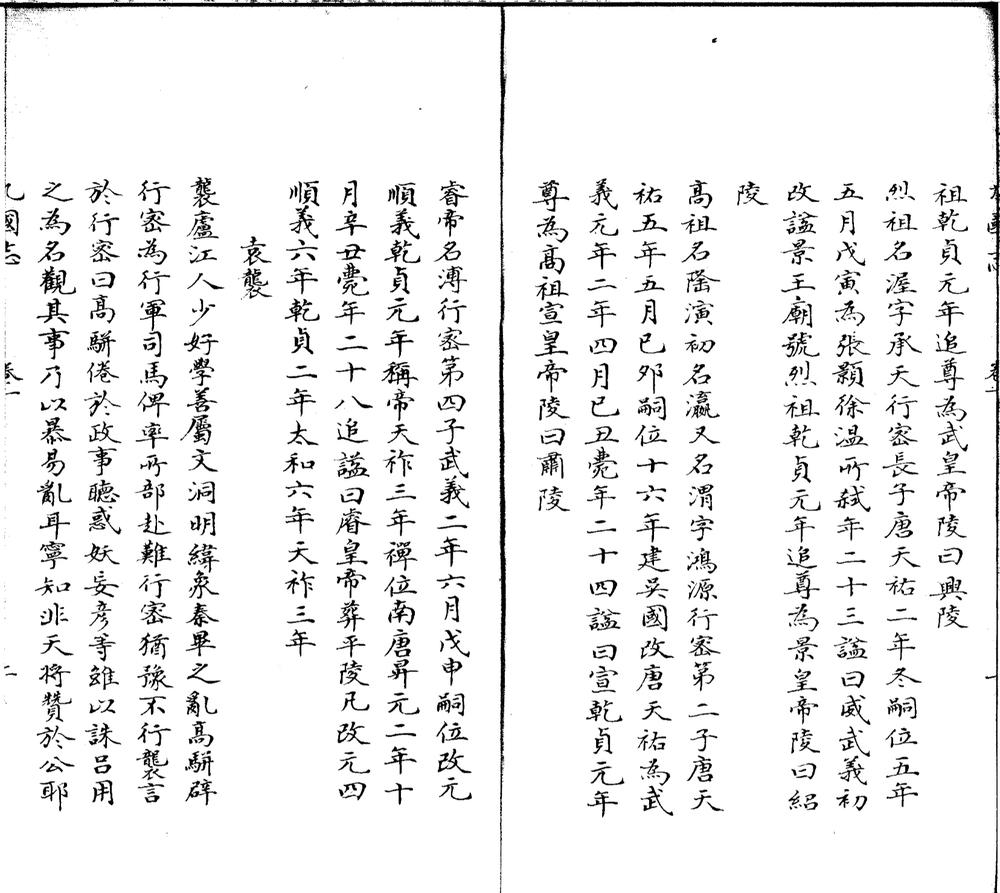 九國志 卷一 一
祖乾貞元年追尊為武皇帝陵曰興陵
烈祖名渥字承天行密長子唐天祐二年冬嗣位五年
五月戊寅為張顥徐溫所弒年二十三諡曰威武義初
改諡景王廟號烈祖乾貞元年追尊為景皇帝陵曰紹
陵
高祖名隆演初名瀛又名渭字鴻源行密第二子唐天
祐五年五月己夘嗣位十六年建吳國改唐天祐為武
義元年二年四月己丑薨年二十四諡曰宣乾貞元年
尊為高祖宣皇帝陵曰肅陵
睿帝名溥行密第四子武義二年六月戊申嗣位改元
順義乾貞元年稱帝天祚三年禪位南唐昇元二年十
月辛丑薨年二十八追諡曰睿皇帝葬平陵凡改元四
順義六年乾貞二年太和六年天祚三年
袁襲
襲廬江人少好學善屬文洞明緯象秦畢之亂高駢辟
行密為行軍司馬俾率所部赴難行密猶豫不行襲言
於行密曰高駢倦於政事聽惑妖妄彥等雖以誅呂用
之為名觀其事乃以暴易亂耳寧知非天將贊於公耶
九國志 卷一 二